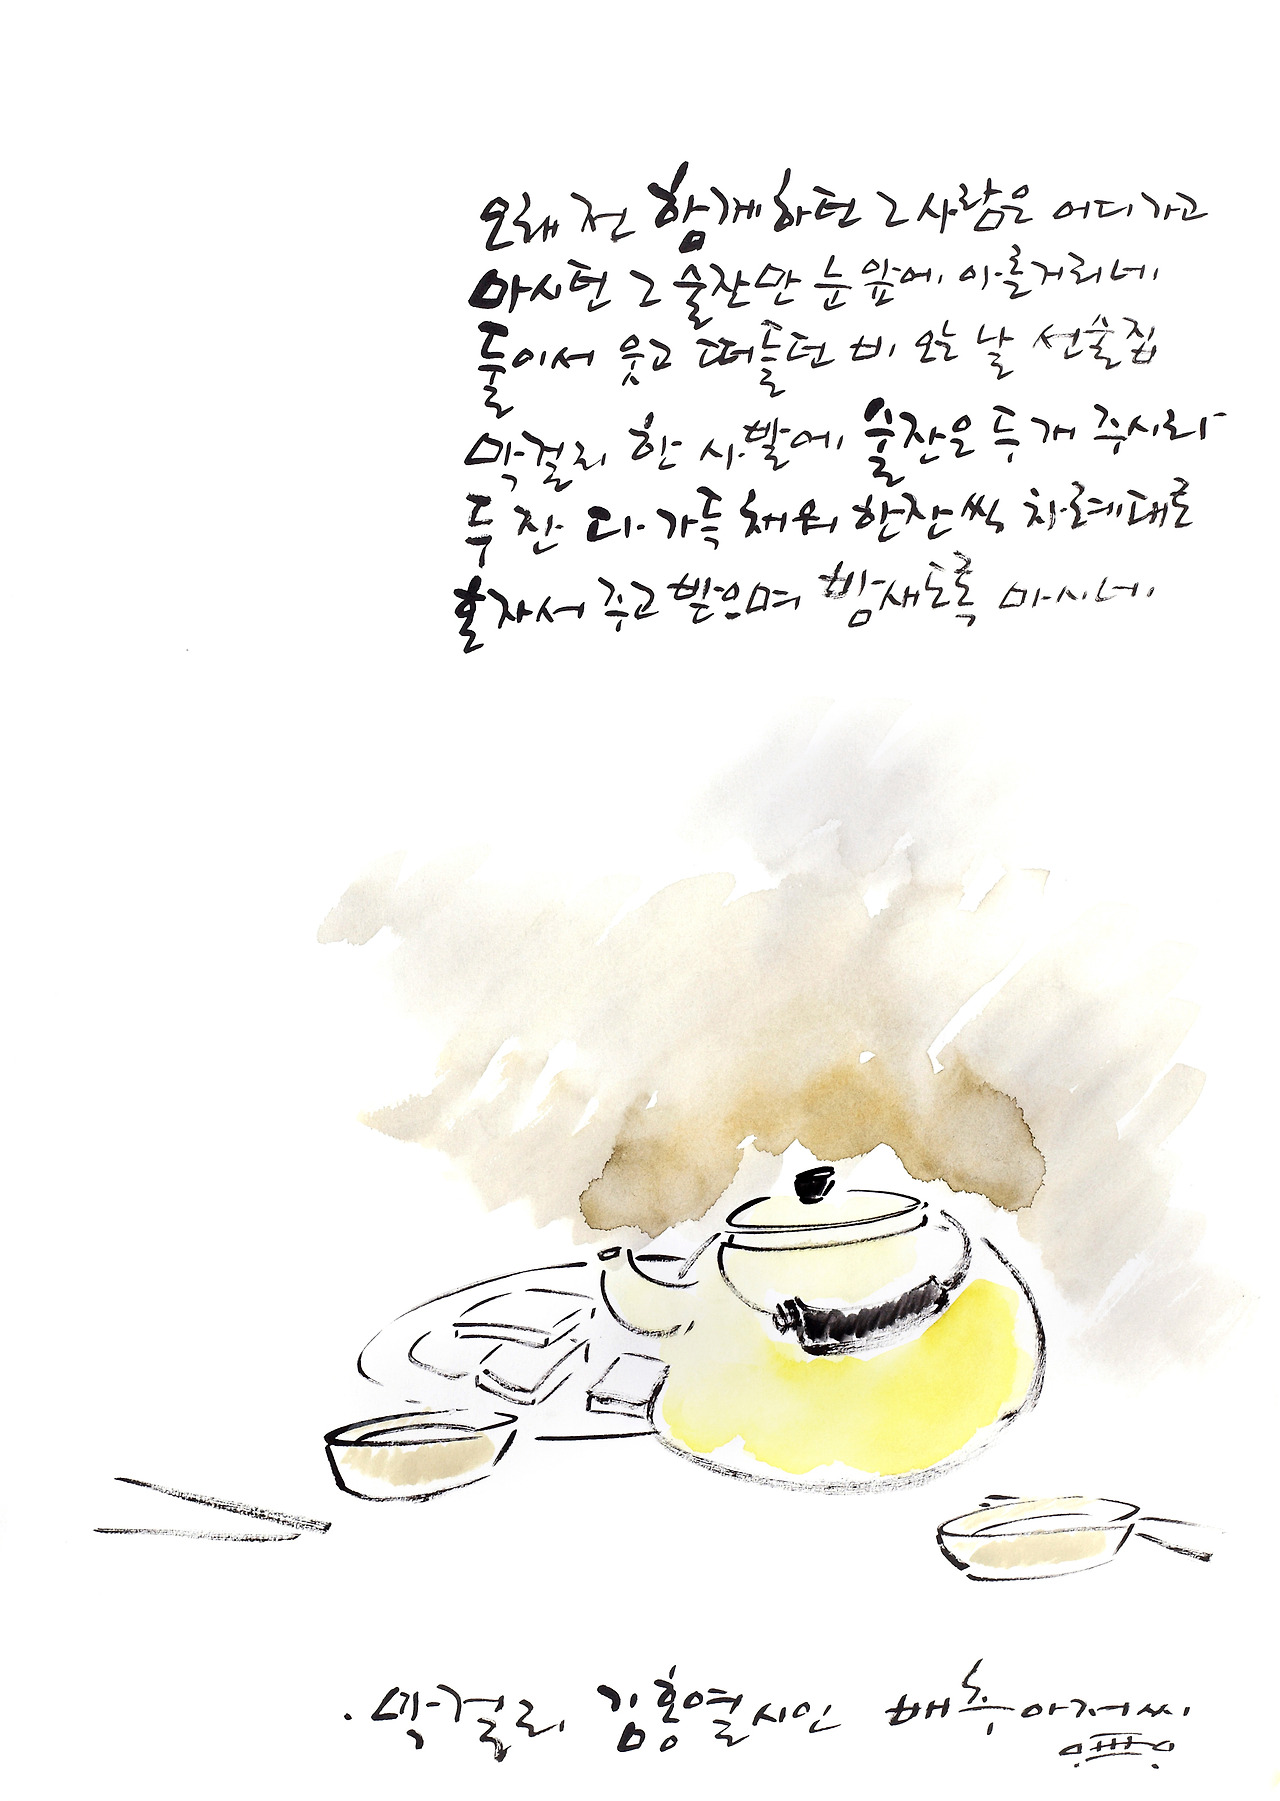 오래 전 함께하던 그 사람은 어디가고
마시던 그 술잔만 눈 앞에 아른거리네
둘이서 웃고 떠들던 비 오는 날 선술집
막걸리 한 사발에 술잔은 두 개 주시라
두 잔 다 가득 채워 한잔씩 차례대로
혼자서 주고 받으며 밤새도록 마시네
·막걸리 김홍열시인 배추아저씨